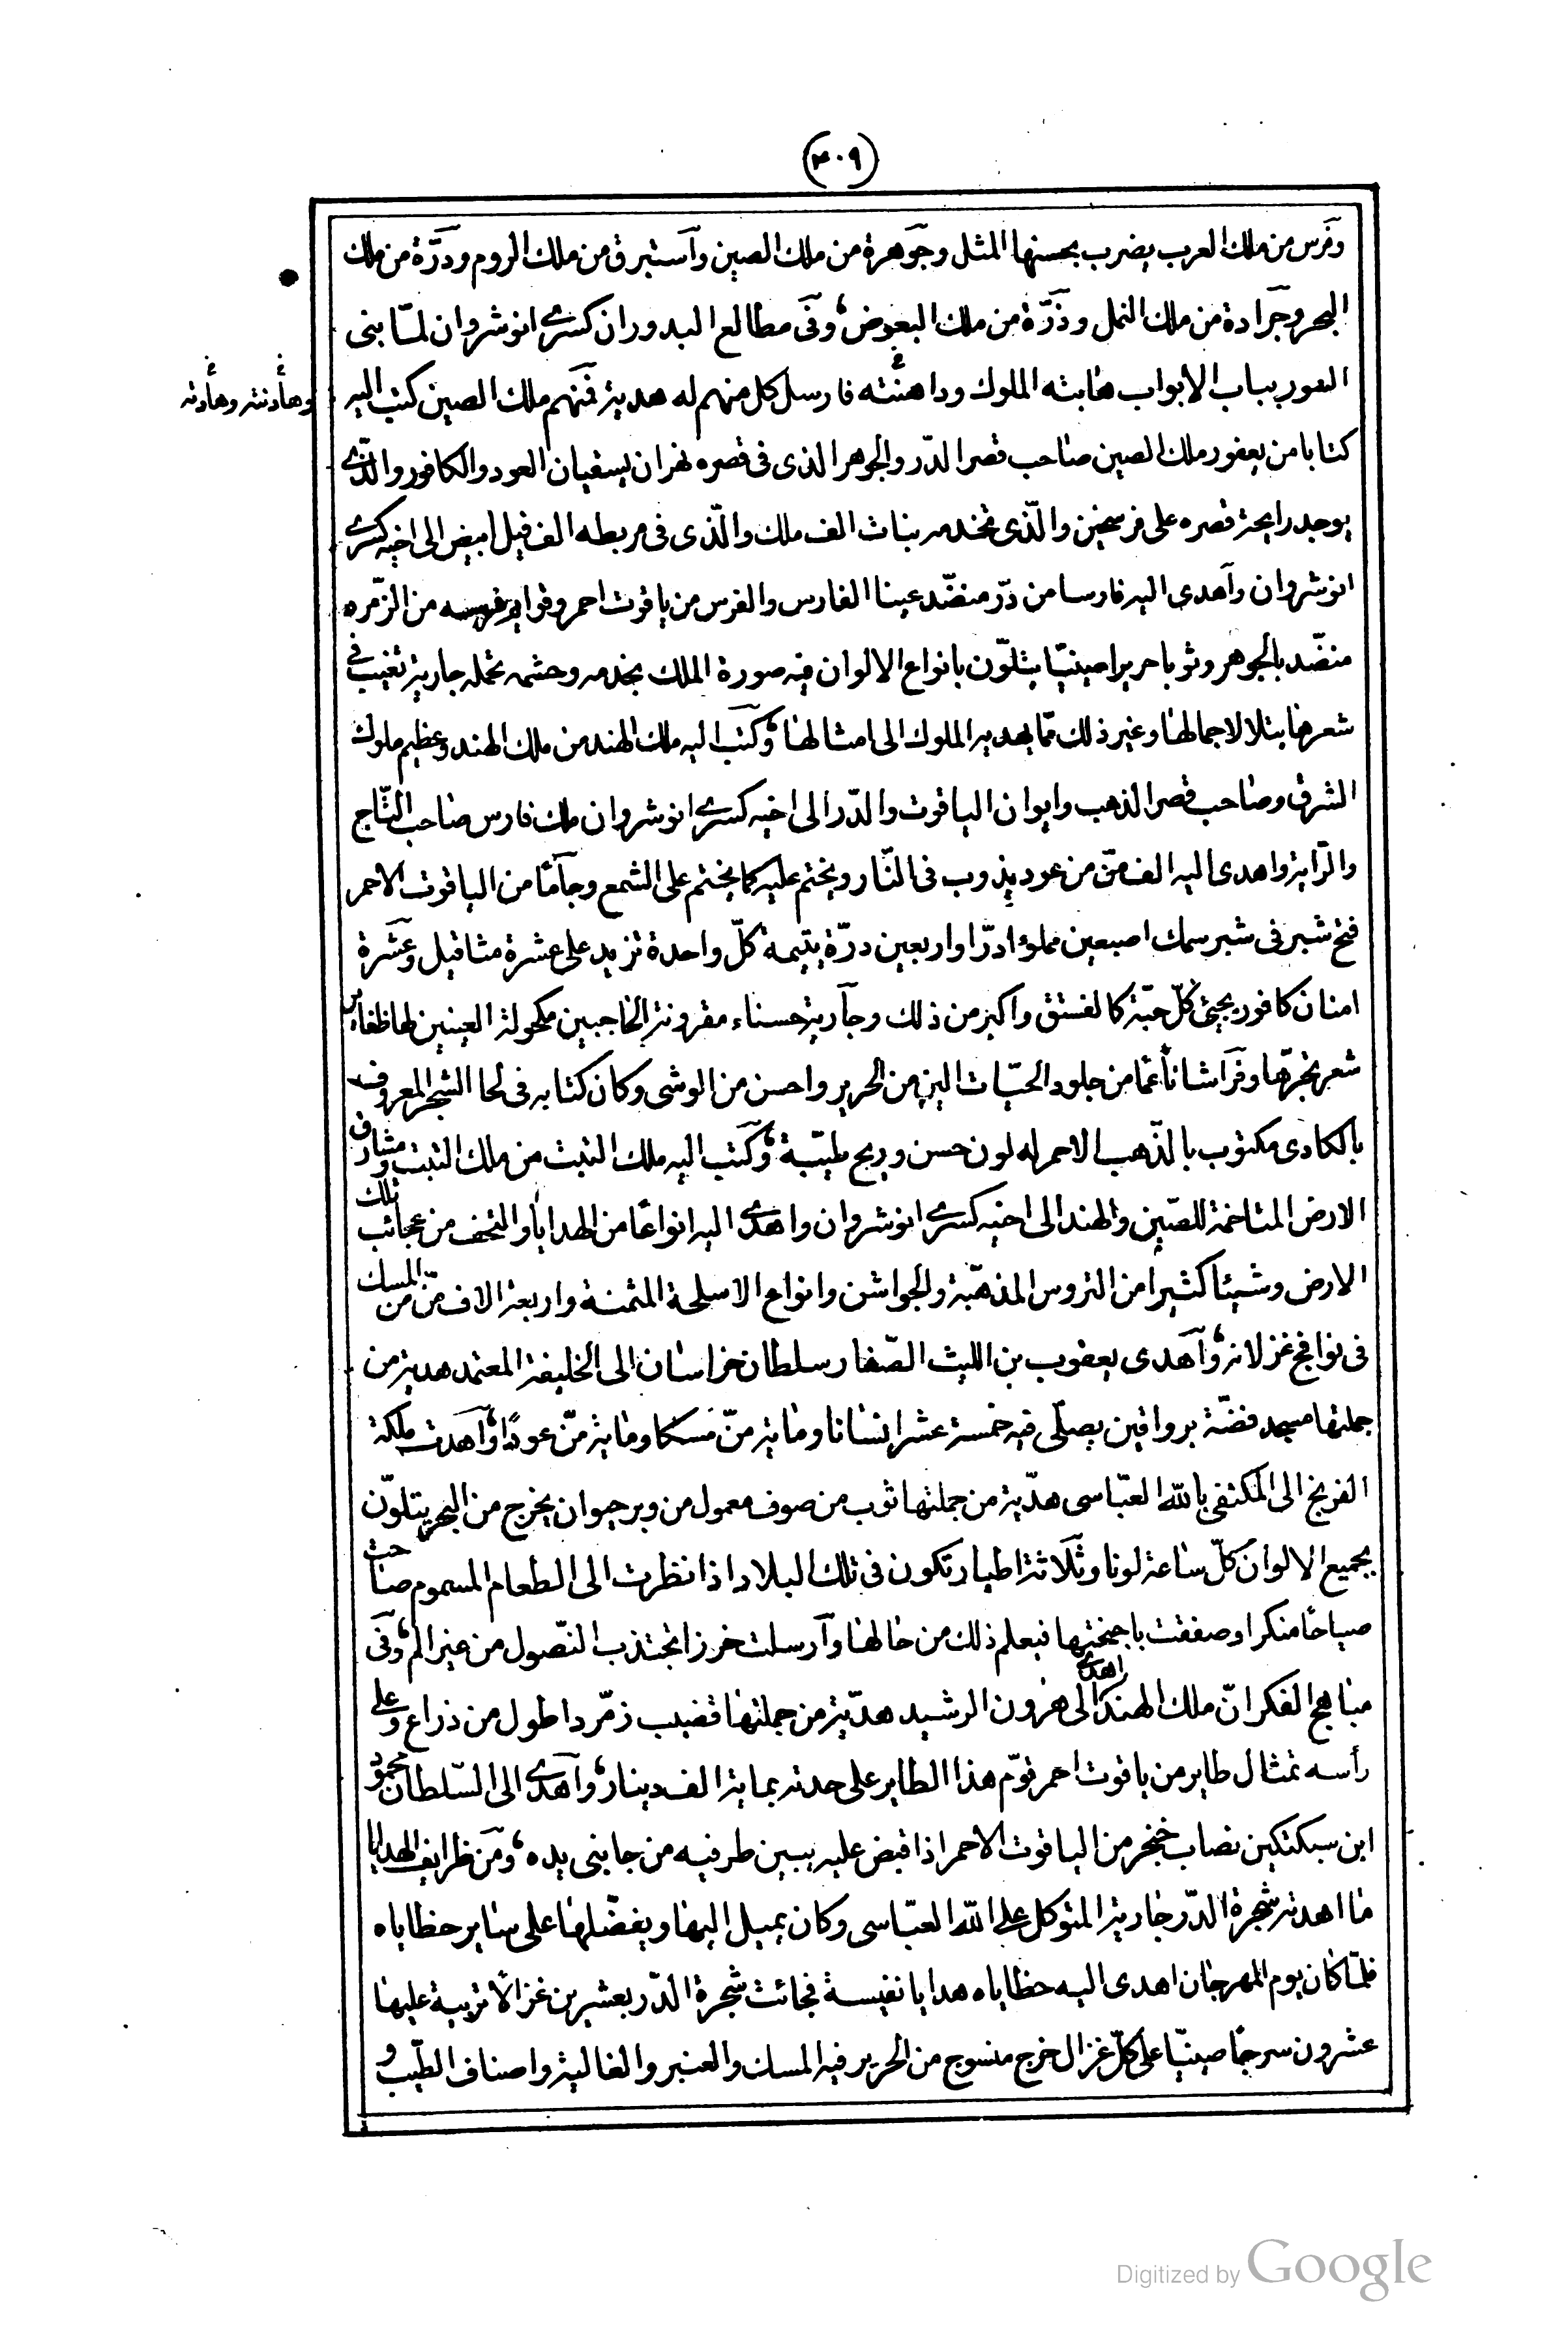 (٣٠٩)
وفرس من ملك العرب يضرب بحسنها المثل وجوهرة من ملك الصين وآستبرق من ملك الروم ودرّة من ملك
البحر وجرادة من ملك النمل وذرّة من ملك البعوض وفى مطالع البدور ان كسرى انوشروان لمّا بنى
السور بباب الابواب هابته الملوك وداهنته فارسل كل منهم له هدية فمنهم ملك الصين كتب اليه
وهادنته وهادته
كتابا من يعفور ملك الصين صاحب قصر الدّر والجوهر الذى فى قصره نهران يسقيان العود والكافور والذّى
يوجد رايحة قصره على فرسخين والّذى تخدمه بنات الف ملك والّذى فى مربطه الف فيل ابيض الى اخيه كسرى
انوشروان وآهدى اليه فارسا من درّ منضّد عينا الفارس والفرس من ياقوت احمر وقوايم فرسه من الزمّرد
منضّد بالجوهر وثوبا حريرا صينيّا يتلوّن بانواع الالوان فيه صورة الملك بخدمه وحشمه تحمله جارية تغيب فى
شعرها يتلالا جمالها وغير ذلك ممّا يهديه الملوك الى امثالها وكتب اليه ملك الهند من ملك الهند وعظيم ملوك
الشرق وصاحب قصر الذهب وايوان الياقوت والدّر الى اخيه كسرى انوشروان ملك فارس صاحب التّاج
والرّاية واهدى اليه الف منّ من عود يذوب فى النّار ويختم عليه كما يختم على الشمع وجآما من الياقوت الاحمر
فتح شبر فى شبر سمك اصبعين مملوءا درّا واربعين درّة يتيمة كلّ واحدة تزيد على عشرة مثاقيل وعشرة
امنان كافور يجئ كلّ حبّة كالفستق واكبر من ذلك وجآرية حسناء مقرونة الحاجبين مكحولة العينين لها ظفاير
شعر تجرّها وفرآشا ناعما من جلود الحيّات الين من الحرير واحسن من الوشى وكان كتابه فى لحا الشجر المعروف
بالكادى مكتوب بالذّهب الاحمر له لون حسن وريح طيّبة وكتب اليه ملك التبت من ملك التبت ومشارق
الارض المتاخمة للصّين والهند الى اخيه كسرى انوشروان واهدى اليه انواعا من الهدايا والتحف من عجائب تلك
الارض وشيئا كثيرا من التروس المذهّبة والجواشن وانواع الاسلحة المثمنة واربعة الاف منّ من المسك
فى نوافج غزلانه وآهدى يعقوب بن الليث الصّفار سلطان خراسان الى الخليفة المعتمد هدية من
جملتها مسجد فضّة برواقين يصلّى فيه خمسة عشر انسانا ومائة منّ مسكا ومائة منّ عودًا وآهدت ملكة
الفرنج الى المكتفى بالله العبّاسى هديّة من جملتها ثوب من صوف معمول من وبر حيوان يخرج من البحر يتلوّن
بجميع الالوان كلّ ساعة لونا وثلاثة اطيار تكون فى تلك البلاد اذا نظرت الى الطعام المسموم صاحت
صياحًا منكرا وصفقت باجنحتها فيعلم ذلك من حالها وآرسلت خرزا تجتذب النّصول من غير الم وفى
مباهج الفكر انّ ملك الهند اهدى الى هرون الرشيد هديّة من جملتها قضيب زمّرد اطول من ذراع وعلى
رأسه تمثال طاير من ياقوت احمر قوّم هذا الطاير على حدته بماية الف دينار وآهدى الى السّلطان محمود
ابن سبكتكين نصاب خنجر من الياقوت الاحمر اذا قبض عليه يبين طرفيه من جانبى يده ومن ظرايف الهدايا
ما اهدته شجرة الدّر جارية المتوكل على الله العبّاسى وكان يميل اليها ويفضّلها على ساير حظاياه
فلمّا كان يوم المهرجان اهدى اليه حظاياه هدايا نفيسة فجائت شجرة الدّر بعشرين غزالًا تربية عليها
عشرون سرجًا صينيّا على كلّ غزال خرج منسوج من الحرير فيه المسك والعنبر والغالية واصناف الطّيب و
Digitized by Google